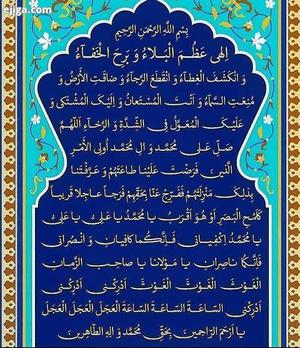 ejiga.com
بِسْمِ اللَّهِ الرَّحْمَنِ الرَّحِيمِ
اِلهي عَظُمَ الْبَلاءُ وَ بَرِحَ الْخَفاءُ
وَ انْكَشَفَ الْغِطاءُ وَ انْقَطَعَ الرَّجاءُ وَ ضاقَتِ الْاَرْضُ وَ
مُنِعَتِ السَّماءُ وَ اَنْتَ الْمُسْتَعانُ وَ اِلَيْكَ الْمُشْتَكى وَ
عَلَيْكَ الْمُعَوَّلُ فِي الشِّدَّةِ وَ الرَّخاءِ اَللّهُمَّ
صَلِّ عَلى مُحَمَّدٍ وَ آلِ مُحَمَّدٍ اُولِي الْاَمْرِ
الَّذينَ فَرَضْتَ عَلَيْنا طاعَتَهُمْ وَ عَرَّفْتَنا
بِذلِكَ مَنْزِلَتَهُمْ فَفَرِّجْ عَنّا بِحَقِّهِمْ فَرَجاً عاجِلاً قَريباً
كَلَمْحِ الْبَصَرِ اَوْ هُوَ اَقْرَبُ يا مُحَمَّدُ يا عَلِيُّ يا عَلِيُّ
يا مُحَمَّدُ اِكْفِياني فَاِنَّكُما كافِيانِ وَ انْصُراني
فَاِنَّكُما ناصِرانِ يا مَوْلانا يا صاحِبَ الزَّمانِ
الْغَوْثَ الْغَوْثَ الْغَوْثَ اَدْرِكْني اَدْرِكْني
اَدْرِكْني السّاعَةَ السّاعَةَ السّاعَةَ الْعَجَلَ الْعَجَلَ الْعَجَلَ
يا اَرْحَمَ الرّاحِمينَ بِحَقِّ مُحَمَّدٍ وَ الِهِ الطّاهِرينَ